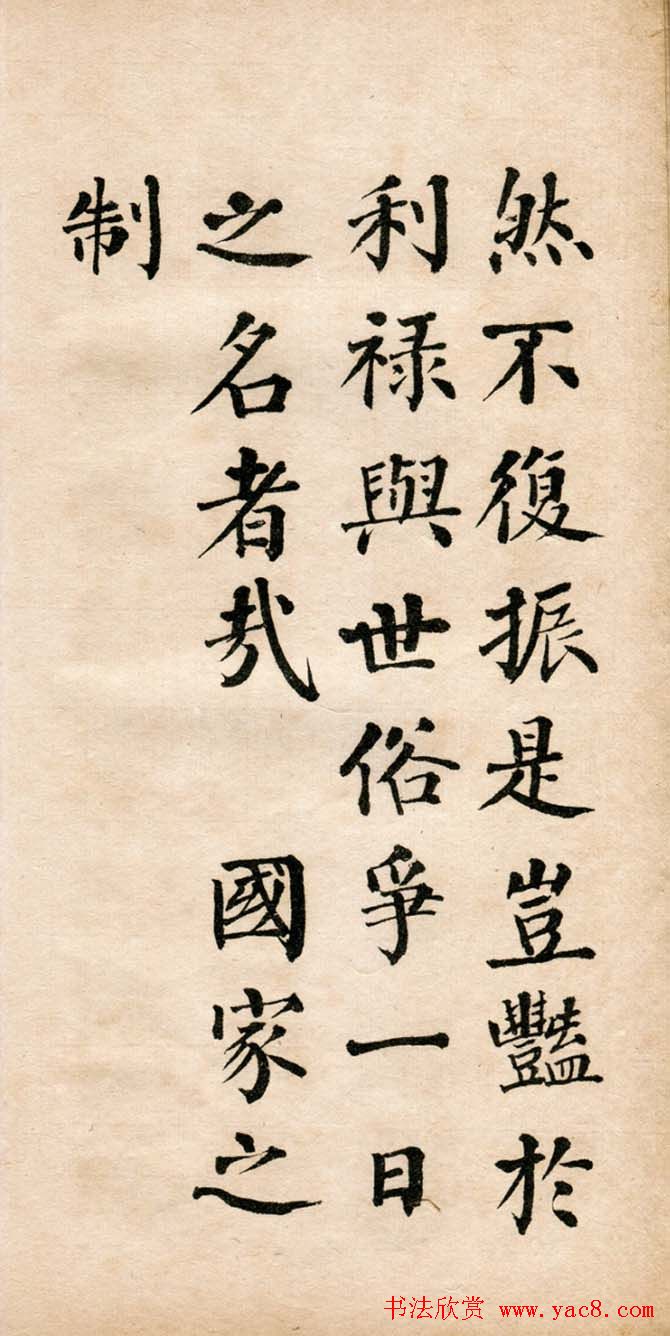 然不復振是豈豔於
利祿與世俗爭一日
之名者哉 國家之
制
书法欣赏 www.yac8.com